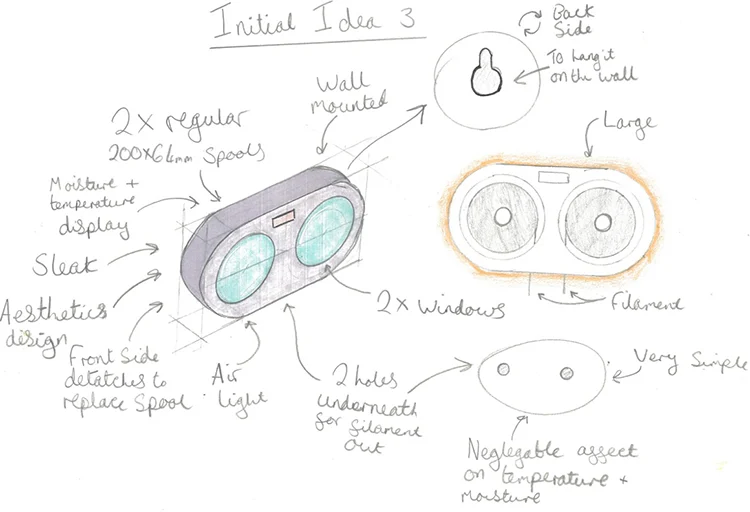 Initial Idea 3
Back
Side
To hang it
on the wall
Wall
mounted
2x regular
200x64mm Spools
Large
Moisture +
temperature
display
Sleak
Aesthetics
design
Front Side
detatches to
replace Spool
Air
light
2 holes
underneath
for filament
Out
2x windows
Filament
Very Simple
Neglegable affect
on temperature +
moisture